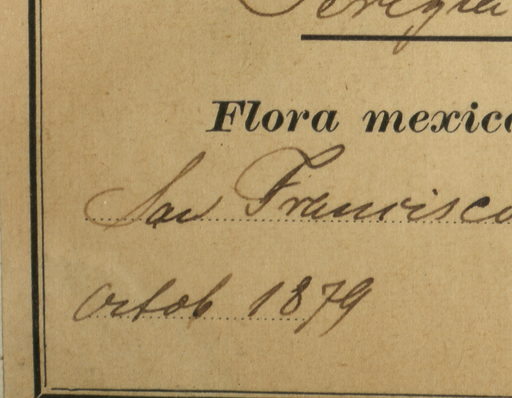 Flora mexica
San Francisco
Octob 1879